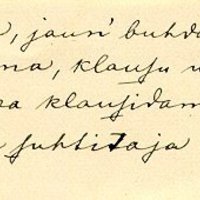 jauri buhda
ma, klausu u
na klausidam
suhtitaja